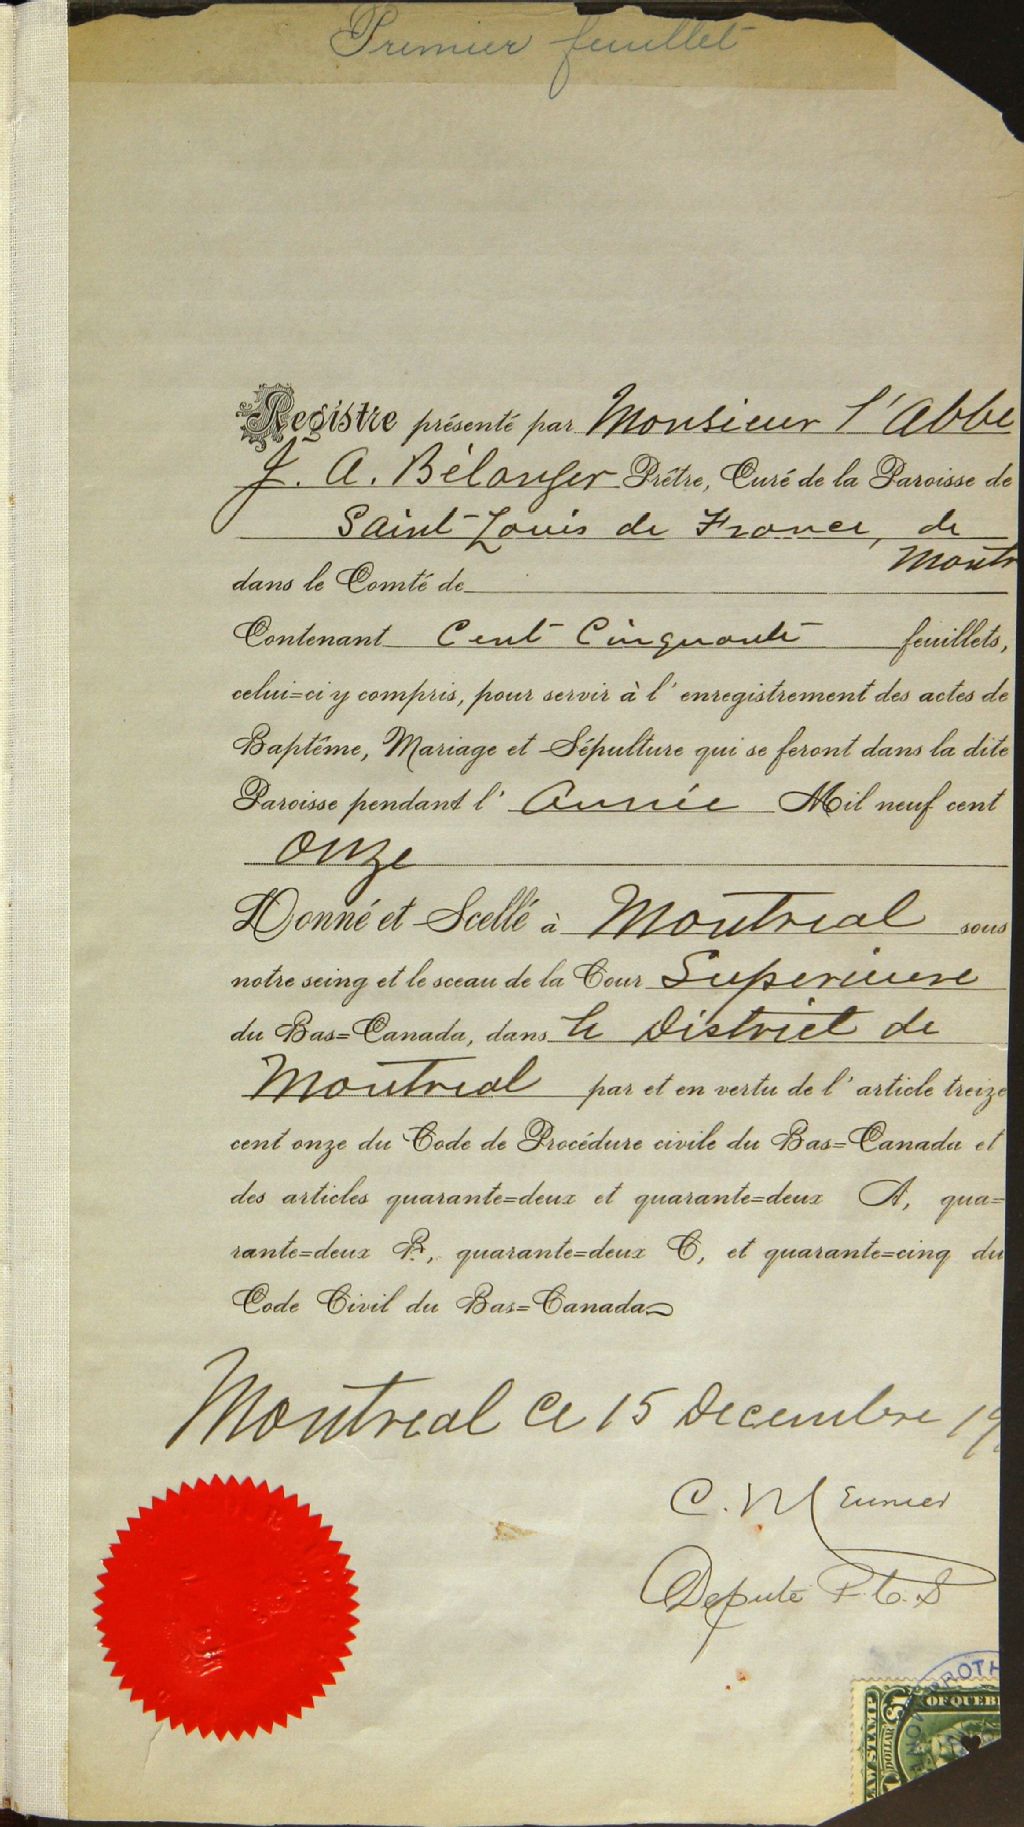 Premier feuillet
Registre présenté par Monsieur l'Abbe
J. A. Bélanger Prêtre, Curé de la Paroisse de
Saint-Louis de France, de
Montr
dans le Comté de
Contenant Cent Cinquante feuillets,
celui=ci y compris, pour servir à l'enregistrement des actes de
Baptême, Mariage et Sépulture qui se feront dans la dite
Paroisse pendant l'Année Mil neuf cent
onze
Donné et Scellé à Montreal sous
notre seing et le sceau de la Cour Superieure
du Bas=Canada, dans le District de
Montreal par et en vertu de l'article treize
cent onze du Code de Procédure civile du Bas=Canada et
des articles quarante=deux et quarante=deux A, qua=
rante=deux B, quarante=deux C, et quarante=cinq du
Code Civil du Bas=Canada
Montreal ce 15 Decembre 19
C. Meunier
Deputé P. C. S
PROTH
OF QUEB
LAW STAMP
$1
DOLLAR